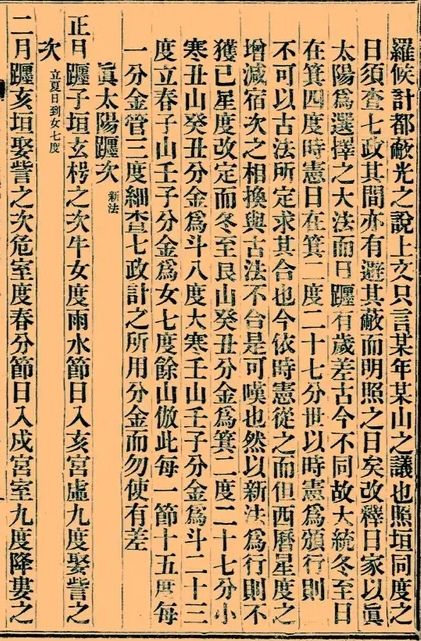 羅候計都蔽光之說上文只言某年某山之議也照垣同度之
日須査七政其間亦有避其蔽而明照之日矣改釋日家以眞
太陽爲選擇之大法而日躔有歲差古今不同故大統冬至日
在箕四度時憲日在箕二度二十七分世以時憲爲頒行則
不可以古法所定求其合也今依時憲從之而但西曆星度之
增減宿次之相換與古法不合是可嘆也然以新法爲行則不
獲已星度改定而冬至艮山癸丑分金爲箕二度二十七分小
寒丑山癸丑分金爲斗八度大寒壬山壬子分金爲斗二十三
度立春子山壬子分金爲女七度餘山倣此每一節十五度每
一分金管三度細査七政計之所用分金而勿使有差
眞太陽躔次 新法
正月躔子垣玄枵之次牛女度雨水節日入亥宮虛九度娶訾之
次 立夏日到女七度
二月躔亥垣娶訾之次危室度春分節日入戌宮室九度降婁之